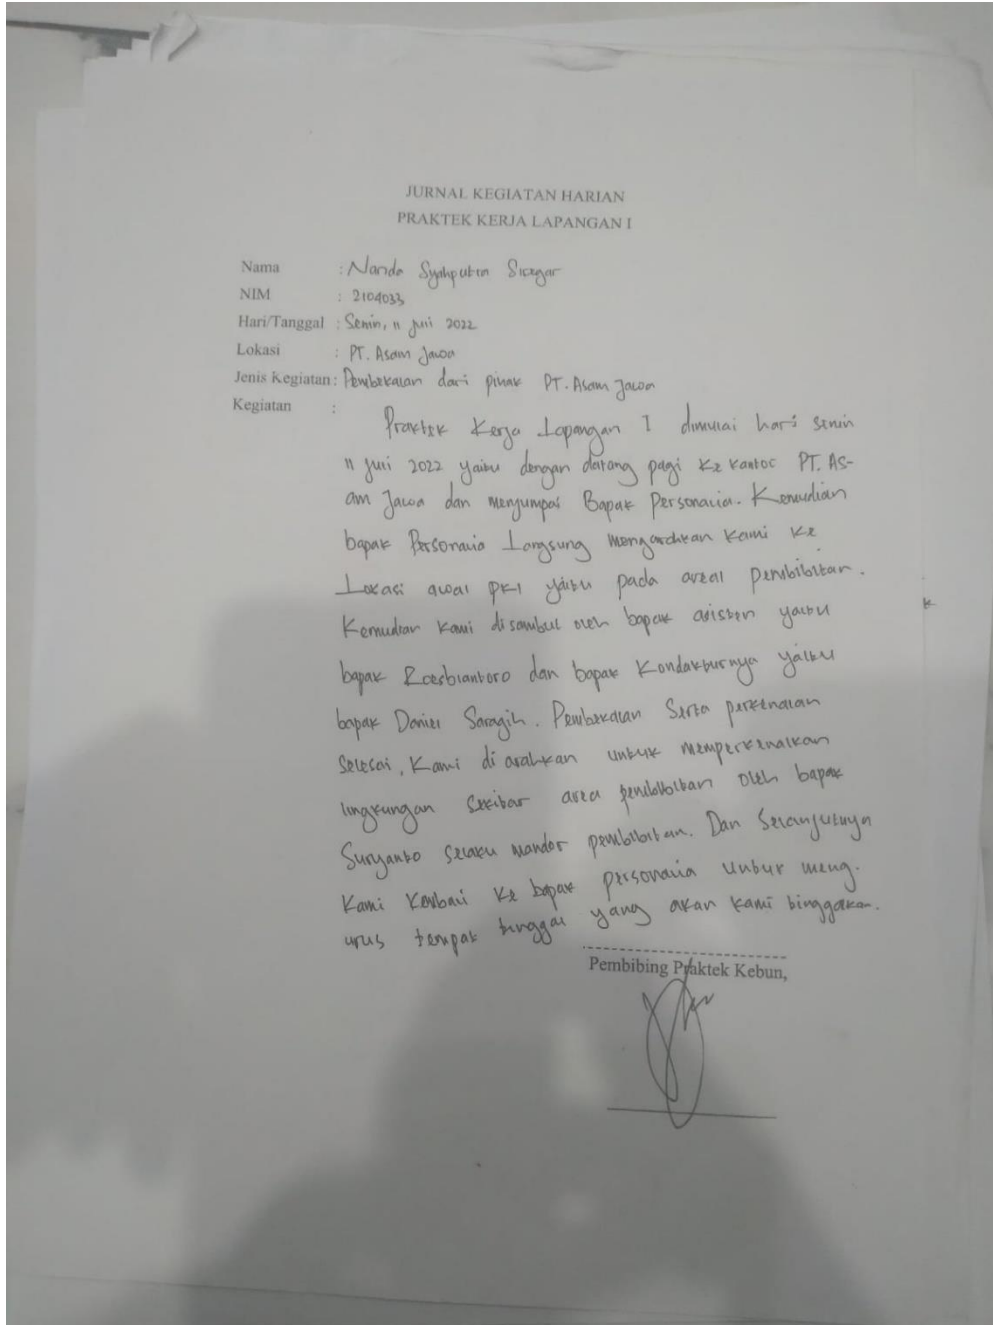 JURNAL KEGIATAN HARIAN
PRAKTEK KERJA LAPANGAN I
Nama : Nanda Syahputra Siregar
NIM : 2104033
Hari/Tanggal : Senin, 11 Juli 2022
Lokasi : PT. Asam Jawa
Jenis Kegiatan : Pembekalan dari pihak PT. Asam Jawa
Kegiatan :
Praktek Kerja Lapangan I dimulai hari senin
11 Juli 2022 yaitu dengan datang pagi ke kantor PT. As-
am Jawa dan menjumpai Bapak Personalia. Kemudian
bapak Personalia Langsung mengarahkan kami ke
Lokasi awal PKL yaitu pada areal pembibitan.
Kemudian kami disambut oleh bapak asisten yaitu
bapak Roesbiantoro dan bapak Kondakturnya yaitu
bapak Daniel Saragih. Pembekalan Serta perkenalan
Selesai, Kami di arahkan untuk memperkenalkan
lingkungan Sekitar area pembibitan oleh bapak
Suryanto Selaku mandor pembibitan. Dan Selanjutnya
Kami Kembali ke bapak personalia untuk meng-
urus tempat tinggal yang akan kami tinggalkan.
Pembibing Praktek Kebun,